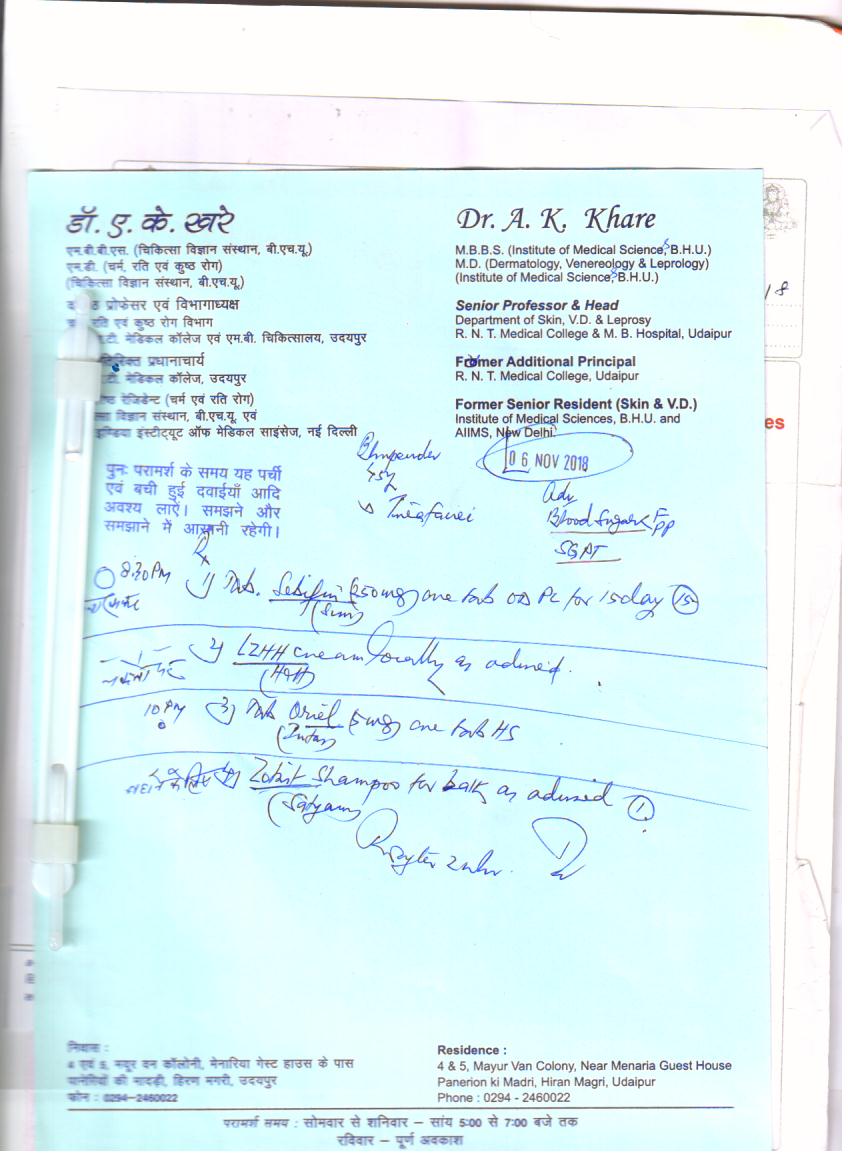 डॉ. ए. के. खरे
एम.बी.बी.एस. (चिकित्सा विज्ञान संस्थान, बी.एच.यू.)
एम.डी. (चर्म, रति एवं कुष्ठ रोग)
(चिकित्सा विज्ञान संस्थान, बी.एच.यू.)
प्रोफेसर एवं विभागाध्यक्ष
रति एवं कुष्ठ रोग विभाग
मेडिकल कॉलेज एवं एम.बी. चिकित्सालय, उदयपुर
प्रधानाचार्य
मेडिकल कॉलेज, उदयपुर
रेजिडेन्ट (चर्म एवं रति रोग)
विज्ञान संस्थान, बी.एच.यू. एवं
इंस्टीट्यूट ऑफ मेडिकल साइंसेज, नई दिल्ली
Dr. A. K. Khare
M.B.B.S. (Institute of Medical Sciences, B.H.U.)
M.D. (Dermatology, Venereology & Leprology)
(Institute of Medical Sciences, B.H.U.)
Senior Professor & Head
Department of Skin, V.D. & Leprosy
R. N. T. Medical College & M. B. Hospital, Udaipur
Former Additional Principal
R. N. T. Medical College, Udaipur
Former Senior Resident (Skin & V.D.)
Institute of Medical Sciences, B.H.U. and
AIIMS, New Delhi.
06 NOV 2018
पुनः परामर्श के समय यह पर्ची
एवं बची हुई दवाईयाँ आदि
अवश्य लाऐं। समझने और
समझाने में आसानी रहेगी।
Bhupender
45y
Adv
Blood Sugar F PP
SGPT
Rx
8:30 PM 1) Tab. Sebifin (250mg) one tab OD PC for 15 day (15)
(Sun)
2) LZHH cream locally as advised.
(H&H)
10 PM 3) Tab (5mg) one tab HS
(Intas)
नहाने के लिए 4) Shampoo for bath as advised (1)
(Satyam)
निवास :
4 एवं 5, मयूर वन कॉलोनी, मेनारिया गेस्ट हाउस के पास
पानेरियों की मादड़ी, हिरण मगरी, उदयपुर
फोन : 0294-2460022
Residence :
4 & 5, Mayur Van Colony, Near Menaria Guest House
Panerion ki Madri, Hiran Magri, Udaipur
Phone : 0294 - 2460022
परामर्श समय : सोमवार से शनिवार – सांय 5:00 से 7:00 बजे तक
रविवार – पूर्ण अवकाश